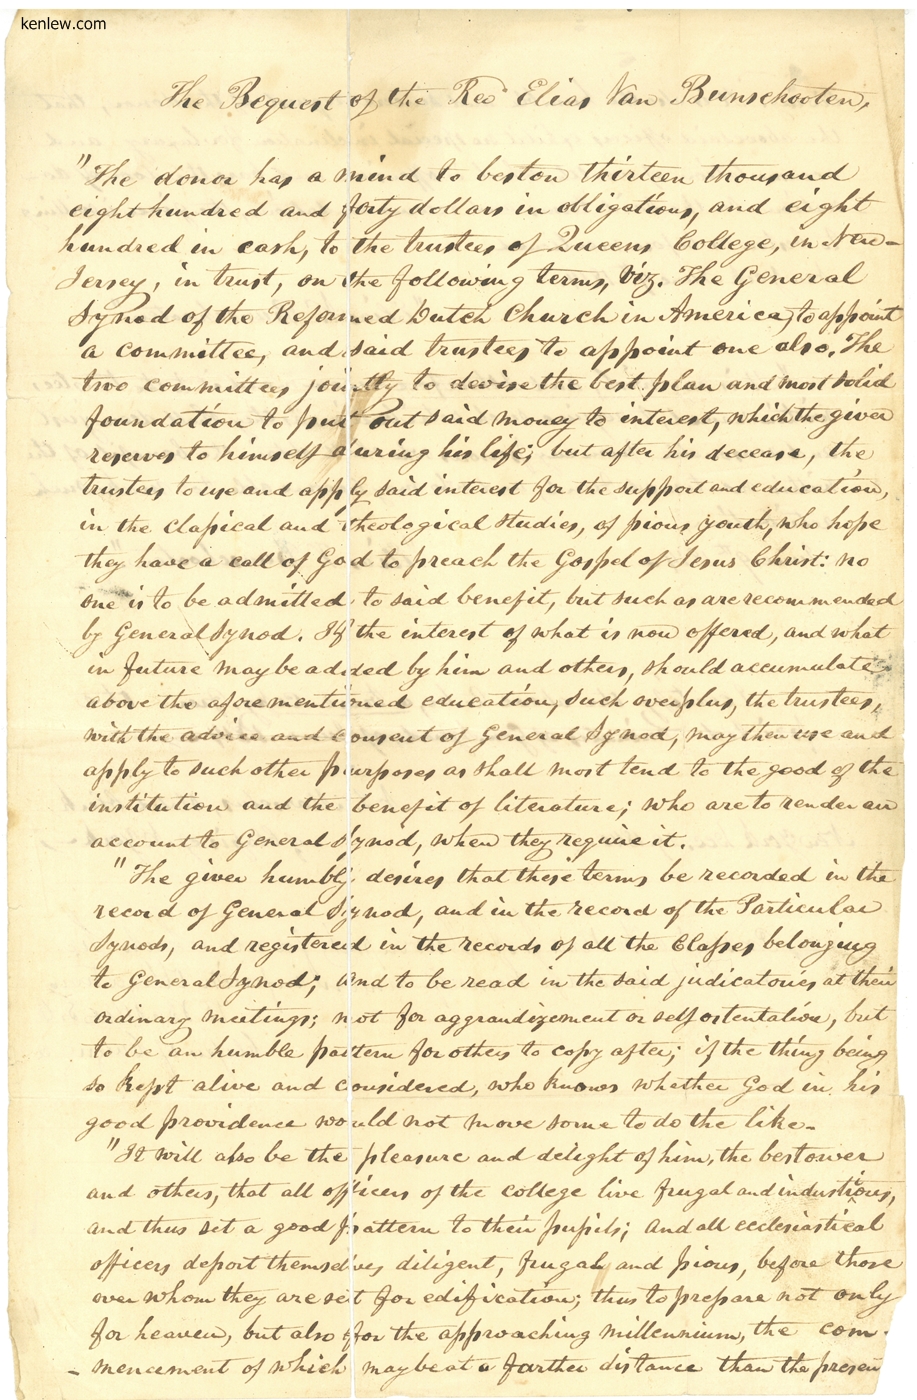 kenlew.com
The Bequest of the Revd Elias Van Bunschooten,
"The donor has a mind to bestow thirteen thousand
eight hundred and forty dollars in obligations, and eight
hundred in cash, to the trustees of Queens College, in New-
Jersey, in trust, on the following terms, viz. The General
Synod of the Reformed Dutch Church in America, to appoint
a committee, and said trustees to appoint one also. The
two committees jointly to devise the best plan and most solid
foundation to put out said money to interest, which the giver
reserves to himself during his life; but after his decease, the
trustees to use and apply said interest for the support and education,
in the classical and theological studies, of pious youth, who hope
they have a call of God to preach the Gospel of Jesus Christ: no
one is to be admitted to said benefit, but such as are recommended
by General Synod. If the interest of what is now offered, and what
in future may be added by him and others, should accumulate
above the aforementioned education, such overplus, the trustees,
with the advice and consent of General Synod, may then use and
apply to such other purposes as shall most tend to the good of the
institution and the benefit of literature; who are to render an
account to General Synod, when they require it.
"The giver humbly desires that these terms be recorded in the
record of General Synod, and in the record of the Particular
Synods, and registered in the records of all the Classes belonging
to General Synod; and to be read in the said judicatories at their
ordinary meetings; not for aggrandizement or self ostentation, but
to be an humble pattern for others to copy after; if the thing being
so kept alive and considered, who knows whether God in his
good providence would not move some to do the like.
"It will also be the pleasure and delight of him, the bestower
and others, that all officers of the college live frugal and industrious,
and thus set a good pattern to their pupils; and all ecclesiastical
officers deport themselves diligent, frugal and pious, before those
over whom they are set for edification; thus to prepare not only
for heaven, but also for the approaching millennium, the com-
-mencement of which may be at a further distance than the present